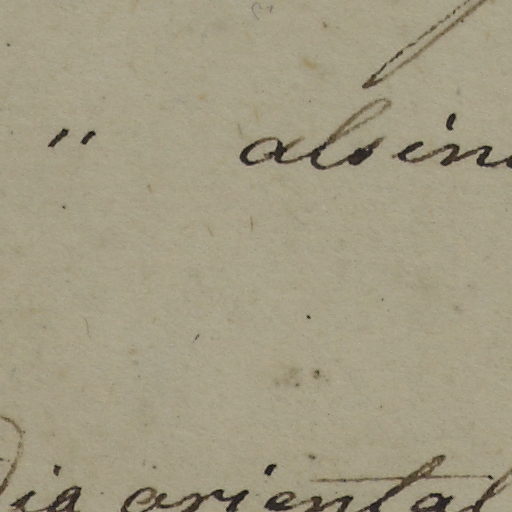 " alsin
ia oriental